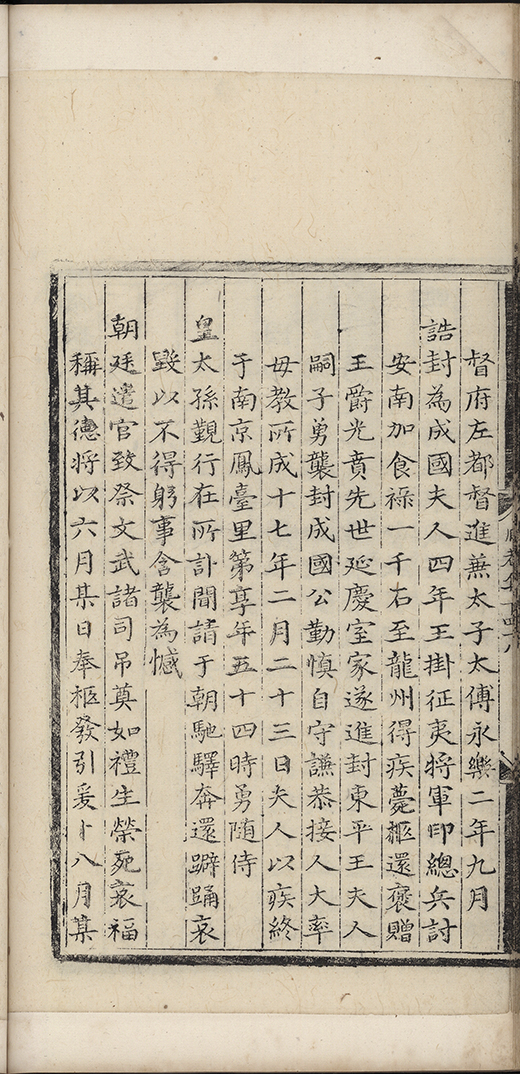 督府左都督進兼太子太傅永樂二年九月
誥封為成國夫人四年王掛征夷將軍印總兵討
安南加食祿一千石至龍州得疾薨柩還褒贈
王爵光賁先世延慶室家遂進封東平王夫人
嗣子勇襲封成國公勤慎自守謙恭接人大率
母教所成十七年二月二十三日夫人以疾終
于南京鳳臺里第享年五十四時勇隨侍
皇太孫覲行在所訃聞請于朝馳驛奔還躃踊哀
毀以不得躬事含襲為憾
朝廷遣官致祭文武諸司吊奠如禮生榮死哀福
稱其德將以六月某日奉柩發引爰卜八月某